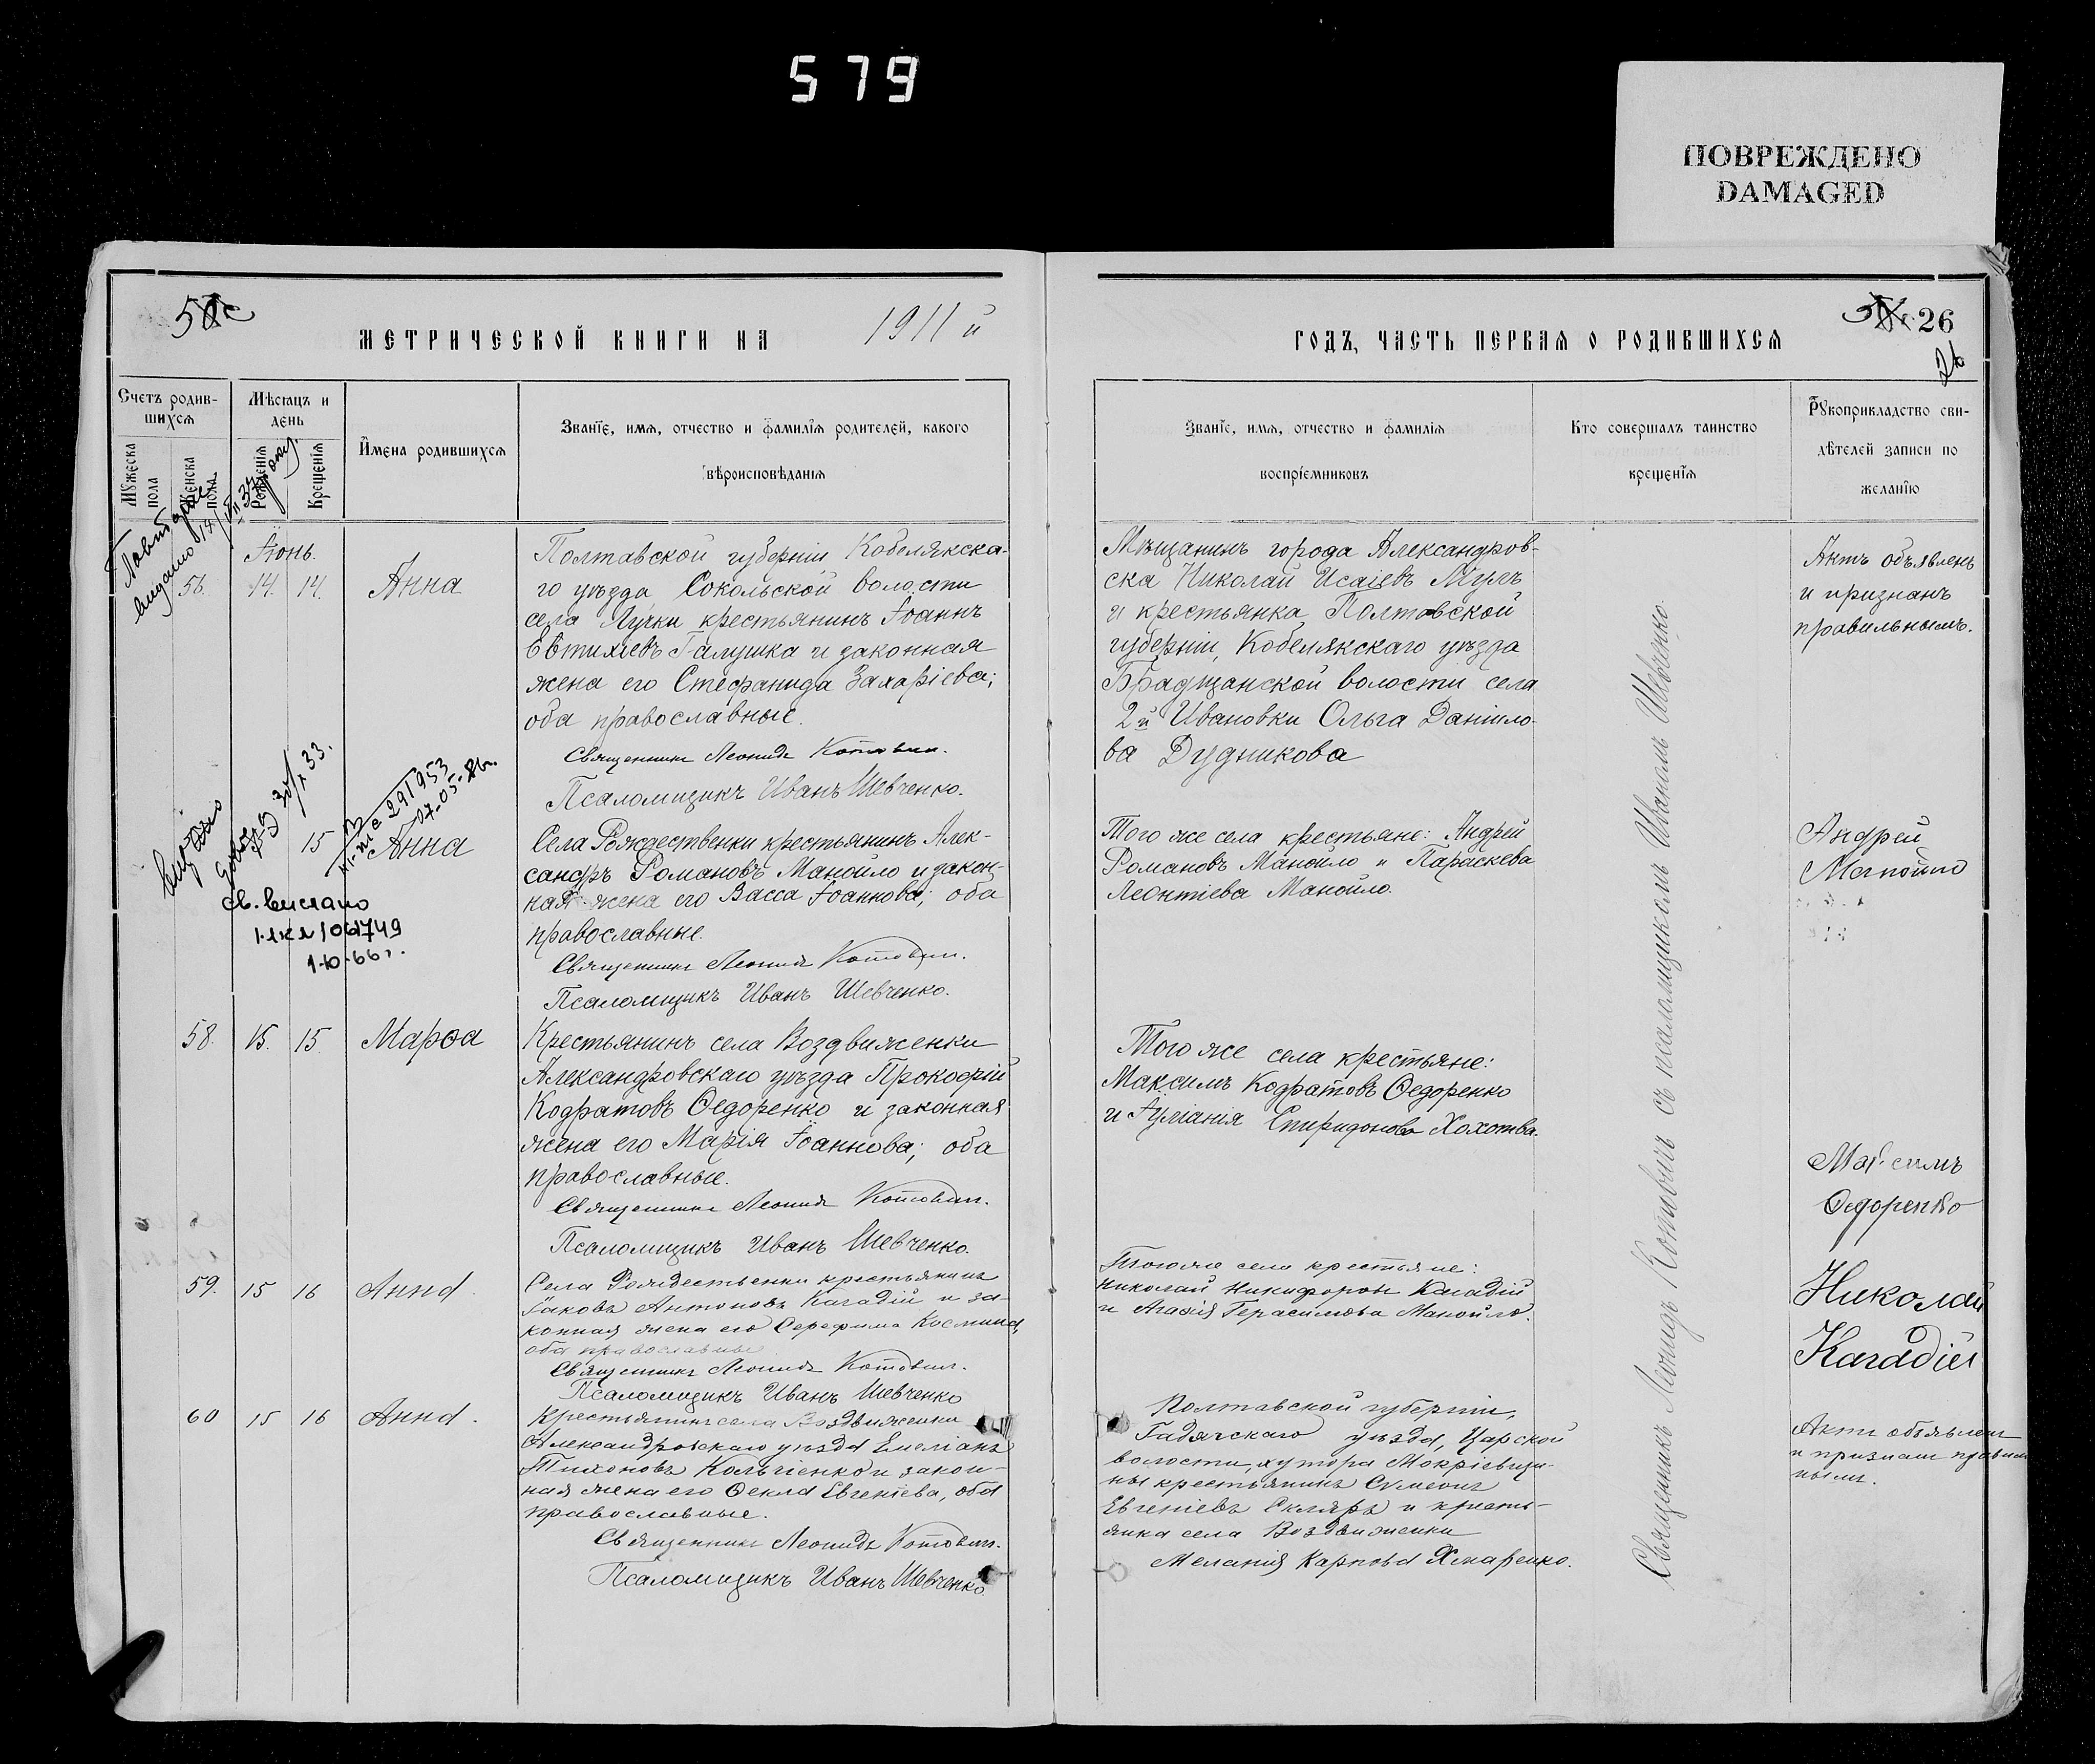 579
ПОВРЕЖДЕНО
DAMAGED
МЕТРИЧЕСКОЙ КНИГИ НА 1911 й
ГОДЪ, ЧАСТЬ ПЕРВАЯ О РОДИВШИХСЯ
26
26
Счетъ родив-
шихся
Мужеска пола
Женска пола
Мѣсяцъ и
день
Рожденія
Крещенія
Имена родившихся
Званіе, имя, отчество и фамилія родителей, какого
вѣроисповѣданія
Званіе, имя, отчество и фамилія
воспріемниковъ
Кто совершалъ таинство
крещенія
Рукоприкладство сви-
дѣтелей записи по
желанію
Іюнь.
56. 14. 14. Анна
Полтавской губерніи Кобелякска-
го уѣзда Сокольской волости
села Лучки крестьянинъ Іоаннъ
Евтихіевъ Галушка и законная
жена его Стефанида Захаріева;
оба православные.
Священникъ Леонидъ Котович.
Псаломщикъ Иванъ Шевченко.
Мѣщанинъ города Александров-
ска Николай Исаіевъ Мулъ
и крестьянка Полтавской
губерніи, Кобелякскаго уѣзда
Бродщанской волости села
2й Ивановки Ольга Даніило-
ва Дудникова
Актъ объявленъ
и признанъ
правильнымъ.
видано
15 Анна
св. выслано
1.10.66 г.
Села Рождественки крестьянинъ Алек-
сандръ Романовъ Манойло и закон-
ная жена его Васса Іоаннова; оба
православные.
Священникъ Леонидъ Котович.
Псаломщикъ Иванъ Шевченко.
Того же села крестьяне: Андрей
Романовъ Манойло и Параскева
Леонтіева Манойло.
Андрей
Манойло
58. 15. 15 Марѳа
Крестьянинъ села Воздвиженки
Александровскаго уѣзда Прокофій
Кодратовъ Ѳедоренко и законная
жена его Марія Іоаннова; оба
православные.
Священникъ Леонидъ Котович.
Псаломщикъ Иванъ Шевченко.
Того же села крестьяне:
Максимъ Кодратовъ Ѳедоренко
и Іуліанія Спиридонова Хохотва.
Максимъ
Ѳедоренко
59. 15 16 Анна
Села Рождественки крестьянинъ
Іаковъ Антоновъ Карадій и за-
конная жена его Серафима Космина,
оба православные
Священникъ Леонидъ Котович.
Псаломщикъ Иванъ Шевченко
Того же села крестьяне:
Николай Никифоровъ Карадій
и Агафія Герасимова Манойло.
Николай
Карадій
60 15 16 Анна.
Крестьянинъ села Воздвиженки
Александровскаго уѣзда Емеліанъ
Тихоновъ и закон-
ная жена его Ѳекла Евгеніева, оба
православные.
Священникъ Леонидъ Котович.
Псаломщикъ Иванъ Шевченко
Полтавской губерніи,
Гадячскаго уѣзда,
волости, хутора
крестьянинъ Сумеонъ
Евгеніевъ Скляръ и кресть-
янка села Воздвиженки
Меланія Карпова Хмаренко.
Актъ объявленъ
и признанъ правиль
нымъ.
Священникъ Леонидъ Котовичъ съ псаломщикомъ Иваномъ Шевченко.